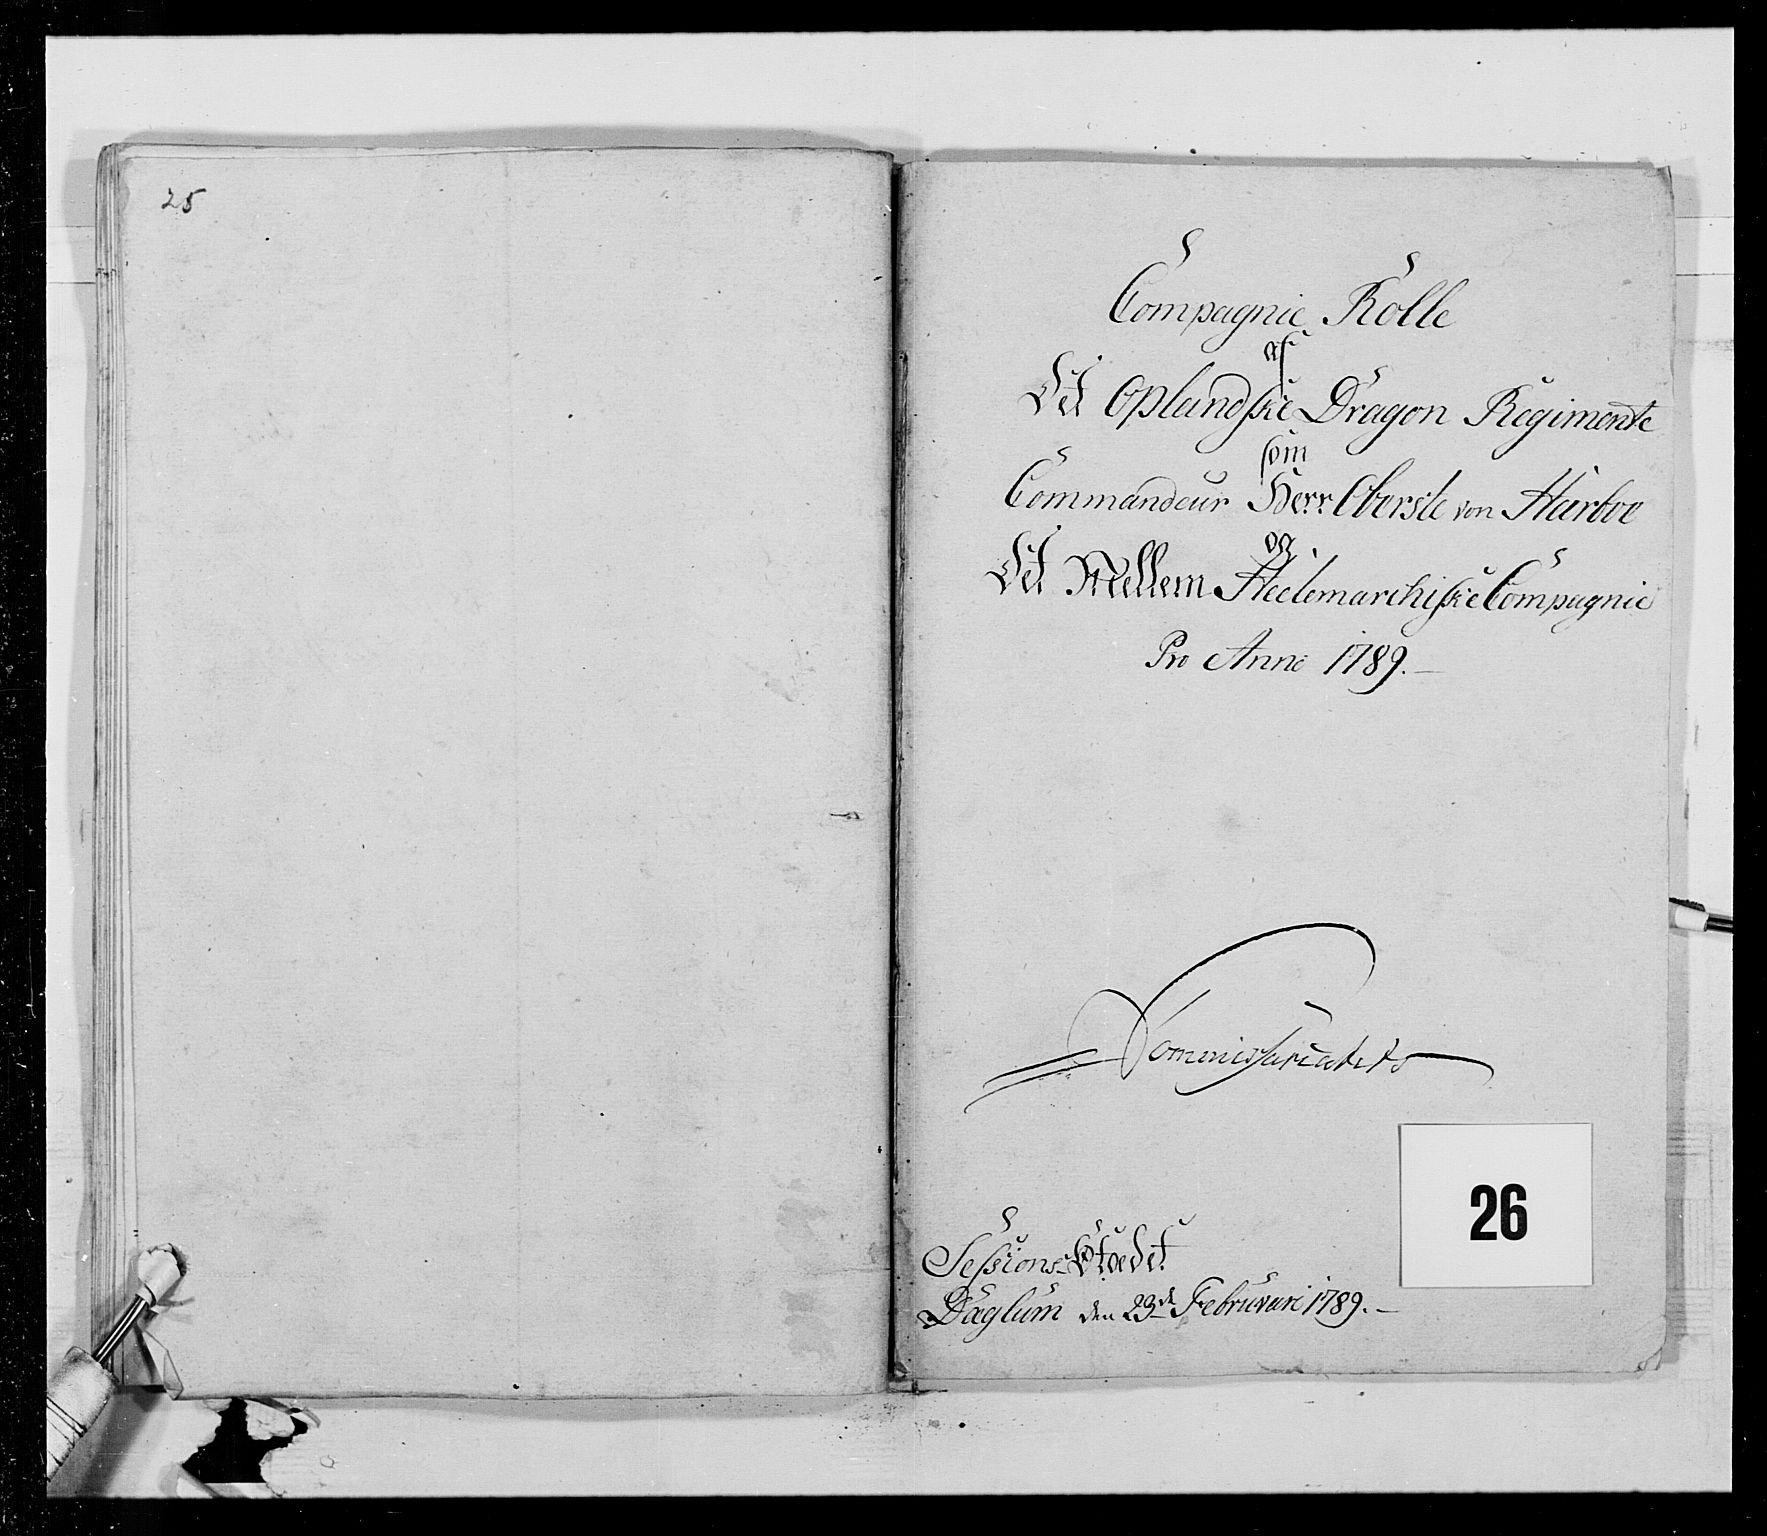 25
Compagnie Rolle
af
Det Oplandske Dragon Regimente
som
Commandeur Herr Oberste von Harboe
og
Det Mellem Hedemarchiske Compagnie
Pro Anno 1789.
Commissariatets
26
Sessions Stædet
Daglum den 23de Februari 1789.